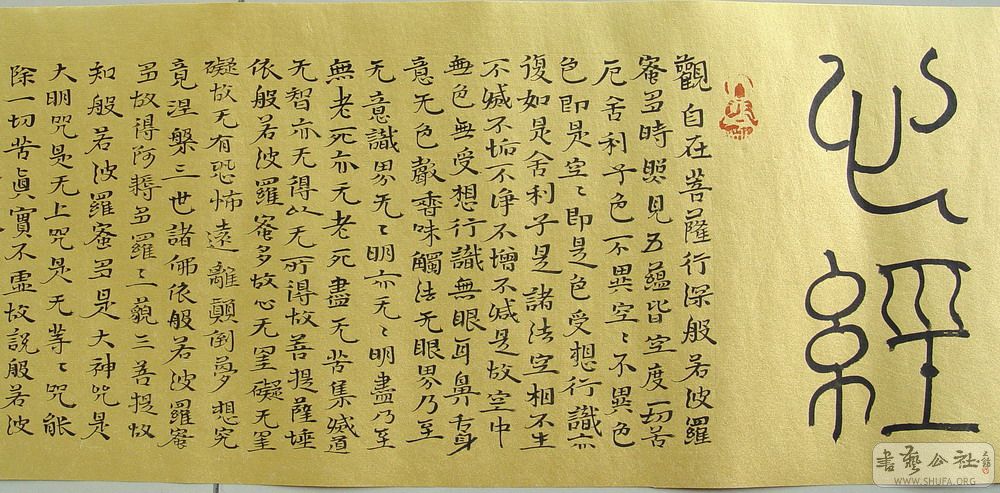 心經
觀自在菩薩行深般若波羅
蜜多時照見五蘊皆空度一切苦
厄舍利子色不異空〻不異色
色即是空〻即是色受想行識亦
復如是舍利子是諸法空相不生
不滅不垢不淨不增不滅是故空中
無色無受想行識無眼耳鼻舌身
意无色聲香味觸法无眼界乃至
无意識界无〻明亦无〻明盡乃至
無老死亦无老死盡无苦集滅道
无智亦无得以无所得故菩提薩埵
依般若波羅蜜多故心无罣礙无罣
礙故无有恐怖遠離顛倒夢想究
竟涅槃三世諸佛依般若波羅蜜
多故得阿耨多羅〻三藐三菩提故
知般若波羅蜜多是大神咒是
大明咒是无上咒是无等〻咒能
除一切苦真實不虛故說般若波
書藝公社
WWW.SHUFA.ORG